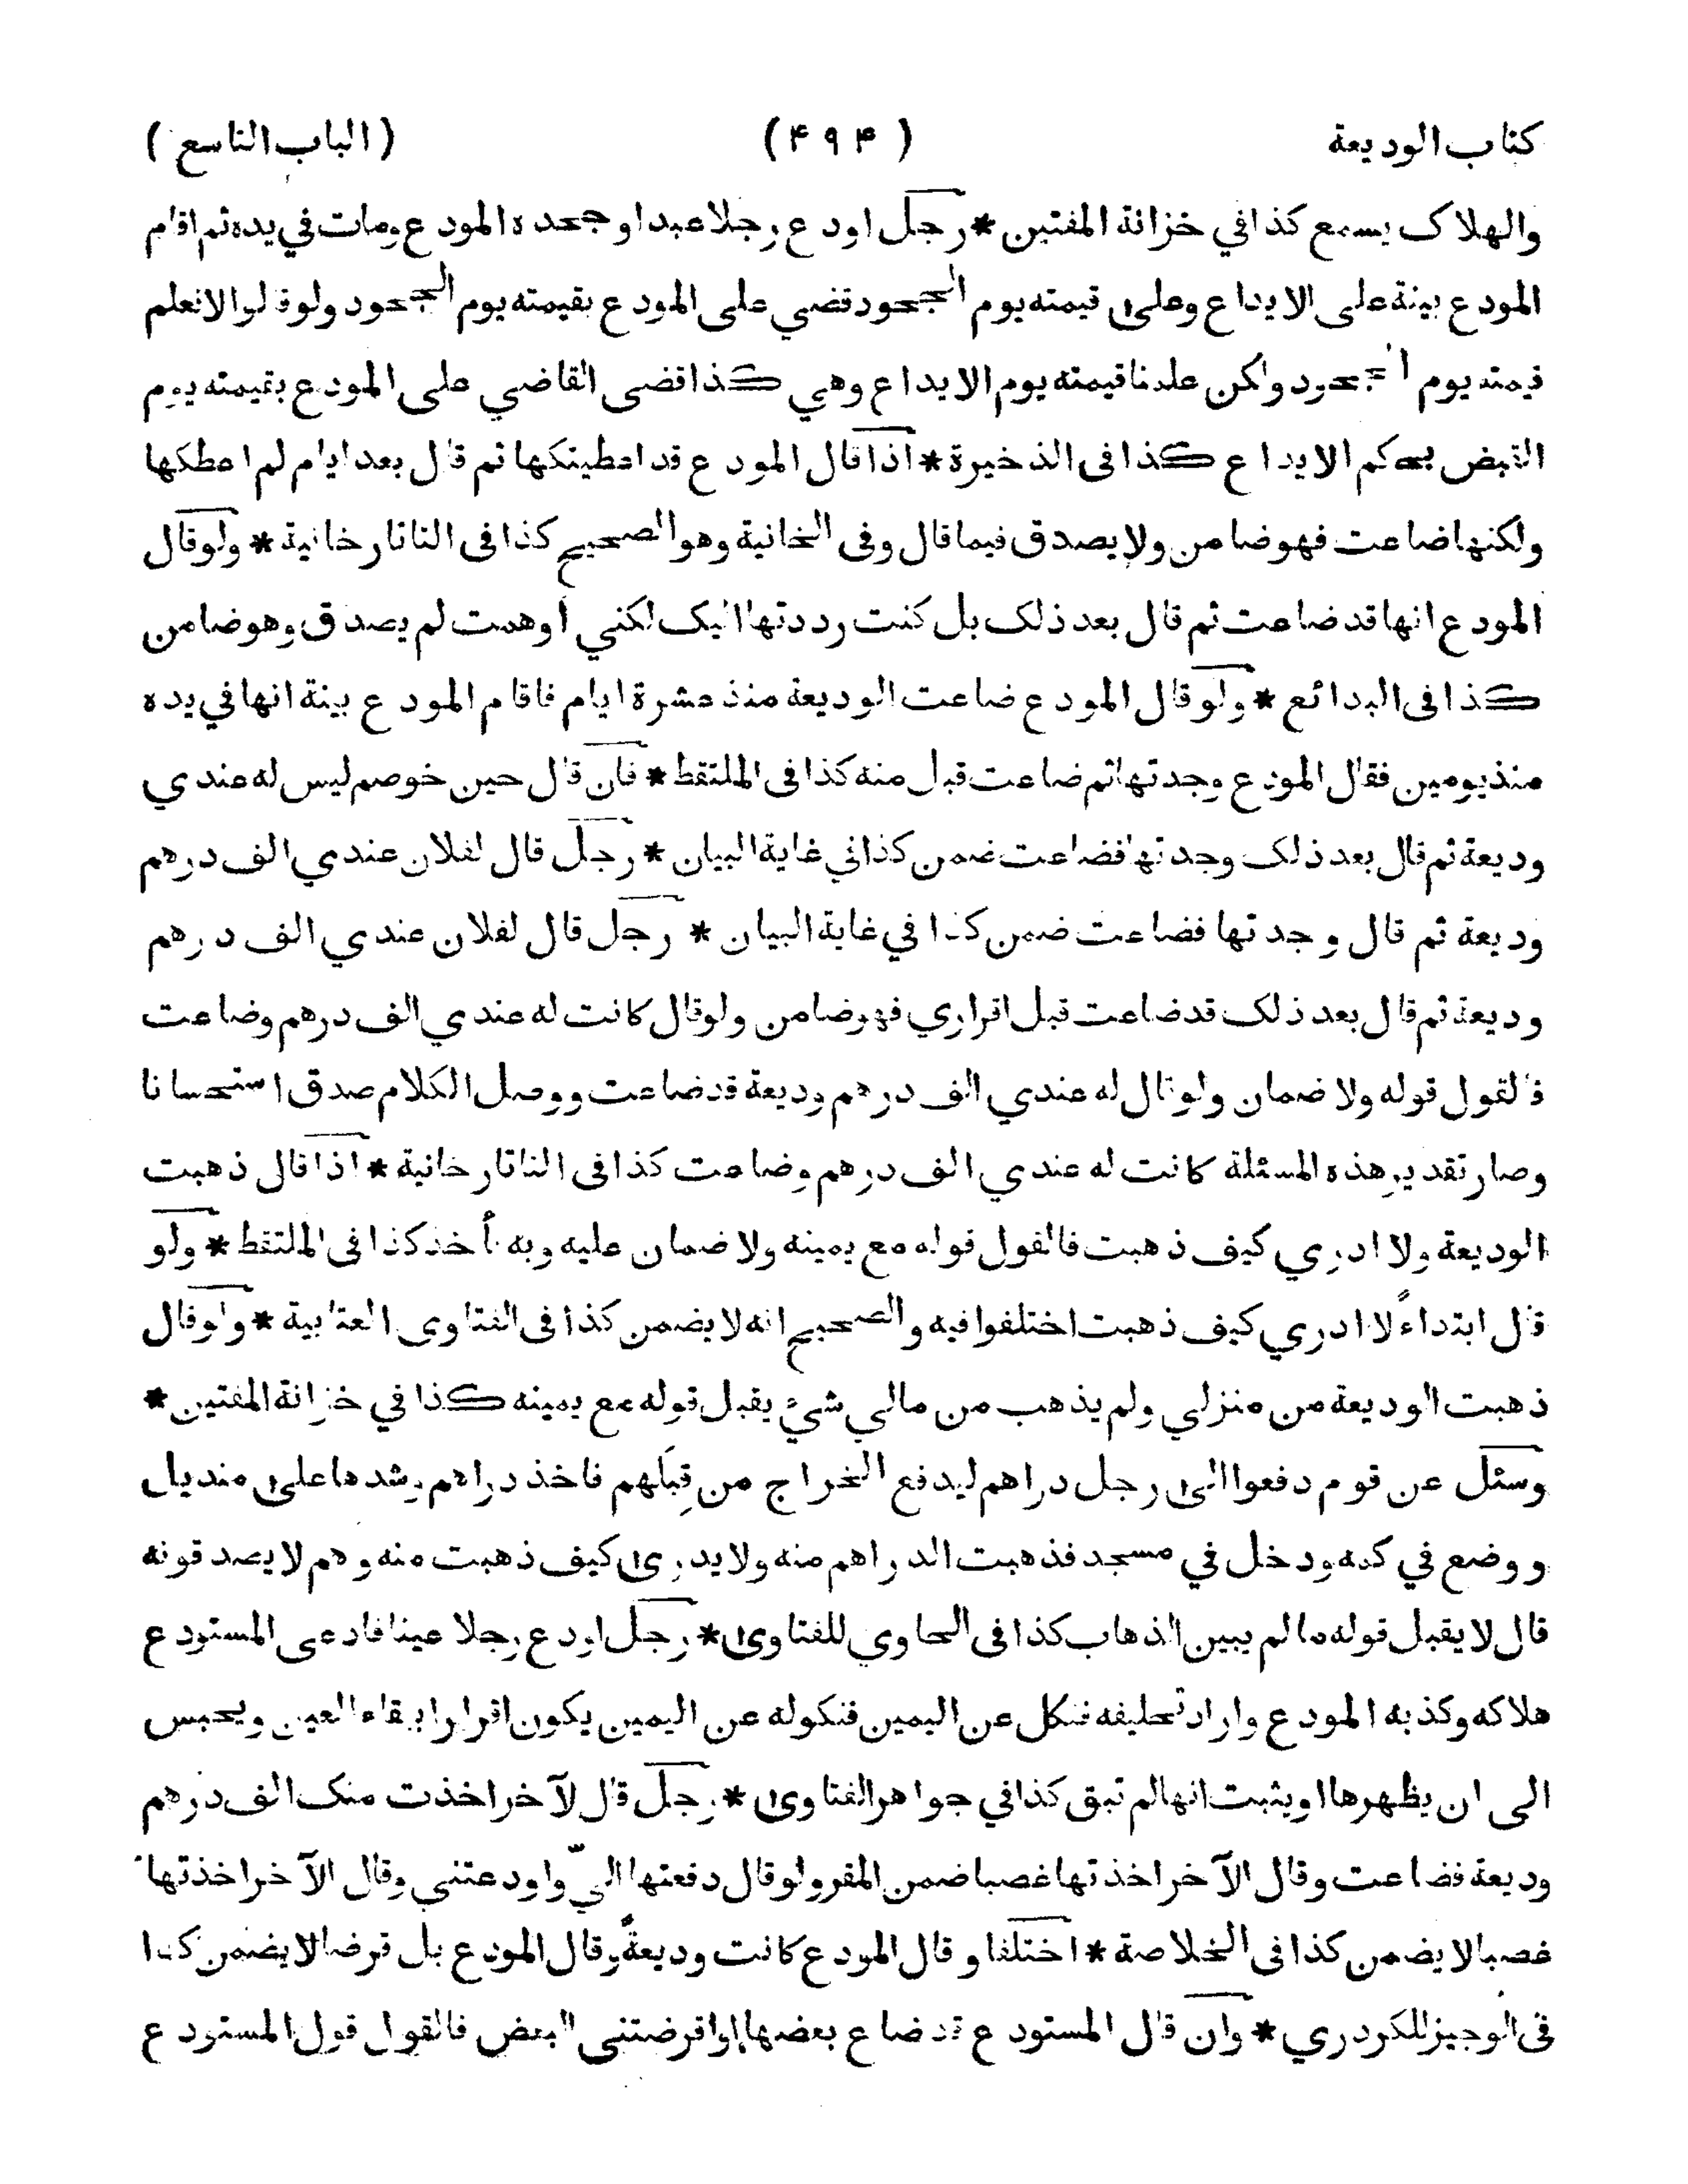 كتاب الوديعة (۴۹۴) (الباب التاسع)
والهلاک يسمع كذا في خزانة المفتين * رجل اودع رجلا عبدا وجحده المودع ومات في يده ثم اقام
المودع بينة على الايداع وعلى قيمته يوم الجحود قضي على المودع بقيمته يوم الجحود ولو قالوا لا نعلم
قيمته يوم الجحود ولكن علمنا قيمته يوم الايداع وهي كذا قضى القاضي على المودع بقيمته يوم
القبض بحكم الايداع كذا فى الذخيرة * اذا قال المودع قد اعطيتكها ثم قال بعد ايام لم اعطكها
ولكنها ضاعت فهو ضامن ولا يصدق فيما قال وفى الخانية وهو الصحيح كذا فى التاتارخانية * ولو قال
المودع انها قد ضاعت ثم قال بعد ذلک بل كنت رددتها اليک لكني أوهمت لم يصدق وهو ضامن
كذا فى البدائع * ولو قال المودع ضاعت الوديعة منذ عشرة ايام فاقام المودع بينة انها في يده
منذ يومين فقال المودع وجدتها ثم ضاعت قبل منه كذا فى الملتقط * فان قال حين خوصم ليس له عندي
وديعة ثم قال بعد ذلک وجدتها فضاعت ضمن كذا في غاية البيان * رجل قال لفلان عندي الف درهم
وديعة ثم قال وجدتها فضاعت ضمن كذا في غاية البيان * رجل قال لفلان عندي الف درهم
وديعة ثم قال بعد ذلک قد ضاعت قبل اقراري فهو ضامن ولو قال كانت له عندي الف درهم وضاعت
فالقول قوله ولا ضمان ولو قال له عندي الف درهم وديعة قد ضاعت ووصل الكلام صدق استحسانا
وصار تقدير هذه المسئلة كانت له عندي الف درهم وضاعت كذا فى التاتارخانية * اذا قال ذهبت
الوديعة ولا ادري كيف ذهبت فالقول قوله مع يمينه ولا ضمان عليه وبه نأخذ كذا فى الملتقط * ولو
قال ابتداءً لا ادري كيف ذهبت اختلفوا فيه والصحيح انه لا يضمن كذا فى الفتاوى العتابية * ولو قال
ذهبت الوديعة من منزلي ولم يذهب من مالي شيء يقبل قوله مع يمينه كذا في خزانة المفتين *
وسئل عن قوم دفعوا الى رجل دراهم ليدفع الخراج من قِبَلهم فاخذ دراهم وشدها على منديل
ووضع في كمه ودخل في مسجد فذهبت الدراهم منه ولا يدرى كيف ذهبت منه وهم لا يصدقونه
قال لا يقبل قوله ما لم يبين الذهاب كذا فى الحاوي للفتاوى * رجل اودع رجلا عينا فادعى المستودع
هلاكه وكذبه المودع واراد تحليفه فنكل عن اليمين فنكوله عن اليمين يكون اقرارا ببقاء العين ويحبس
الى ان يظهرها او يثبت انها لم تبق كذا في جواهر الفتاوى * رجل قال لآخر اخذت منک الف درهم
وديعة فضاعت وقال الآخر اخذتها غصبا ضمن المقر ولو قال دفعتها اليّ واودعتنى وقال الآخر اخذتها
غصبا لا يضمن كذا فى الخلاصة * اختلفا وقال المودع كانت وديعةً وقال المودع بل قرضا لا يضمن كذا
فى الوجيز للكردري * وان قال المستودع قد ضاع بعضها او اقرضتنى البعض فالقول قول المستودع